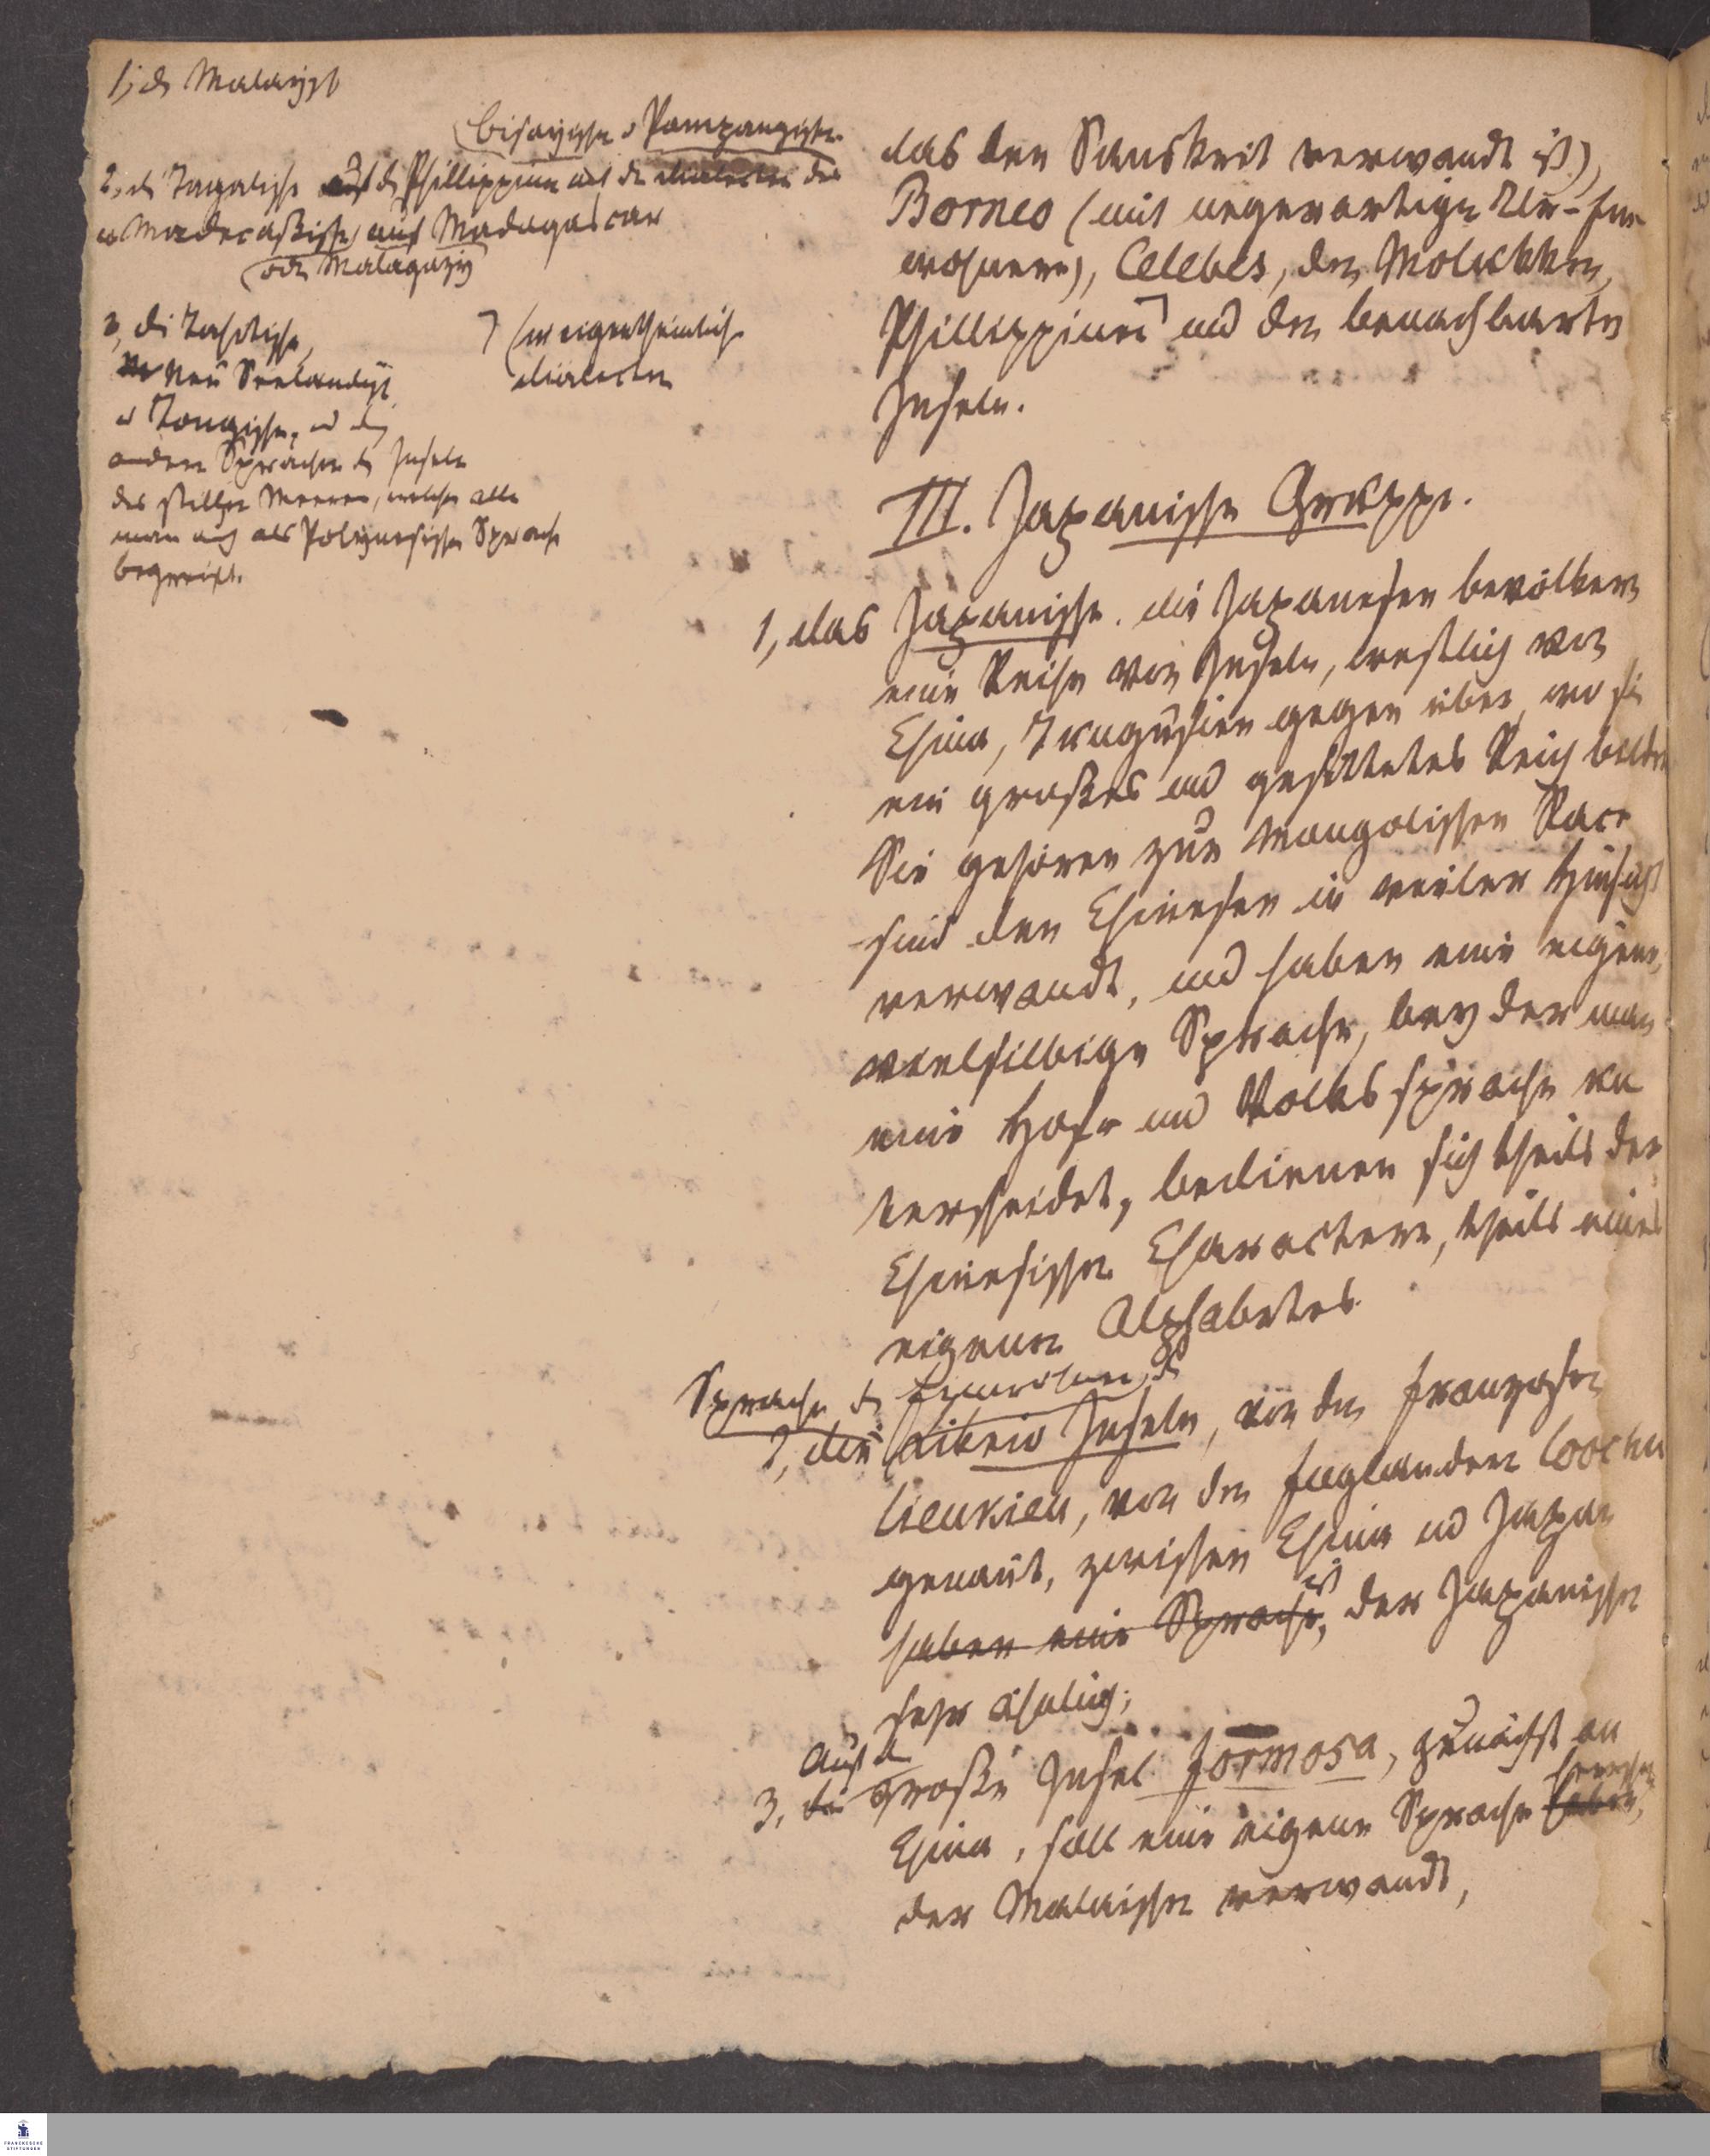 1, das Malayische
Bisayische u Pampangische
2, die Tagalische auf den Philippinen mit den Dialecten des
u Madecassische auf Madagascar
oder Malagazy
3, die Tahitische,
Neu Seeländische
u Tongische, und die
andern Sprachen der Inseln
des stillen Meeres, welche alle
man auch als Polynesische Sprache
begreift.
⁊ (in eigenthümlichen
Dialecten
das dem Sanskrit verwandt ist),
Borneo (mit negerartigen Ur-Ein-
wohnern), Celebes, den Molukken,
Phillippinen ⁊ und den benachbarten
Inseln.
III. Japanische Gruppe.
1, das Japanische. die Japanesen bevölkern
eine Reihe von Inseln, westlich von
China, Tungusien gegen über, wo sie
ein großes und gesittetes Reich bilden
Sie gehören zur Mongolischen Race
sind den Chinesen in vieler Hinsicht
verwandt, und haben eine eigene,
vielsilbige Sprache, bey der man
eine Hofe und Volkssprache un
terscheidet, bedienen sich theils der
Chinesischen Charactere, theils eines
eigenen Alphabetes.
Sprache der Einwohner der
2, die Likeio Inseln, von den Franzosen
Lieukieu, von den Engländern Loochu
genannt, zwischen China und Japan
haben eine Sprache, ist der Japanischen
sehr ähnlich;
Auf der
3, die große Insel Formosa, zunächst an
China, soll eine eigene Sprache haben, herrschen
der Malaischen verwandt,
FRANCKESCHE
STIFTUNGEN